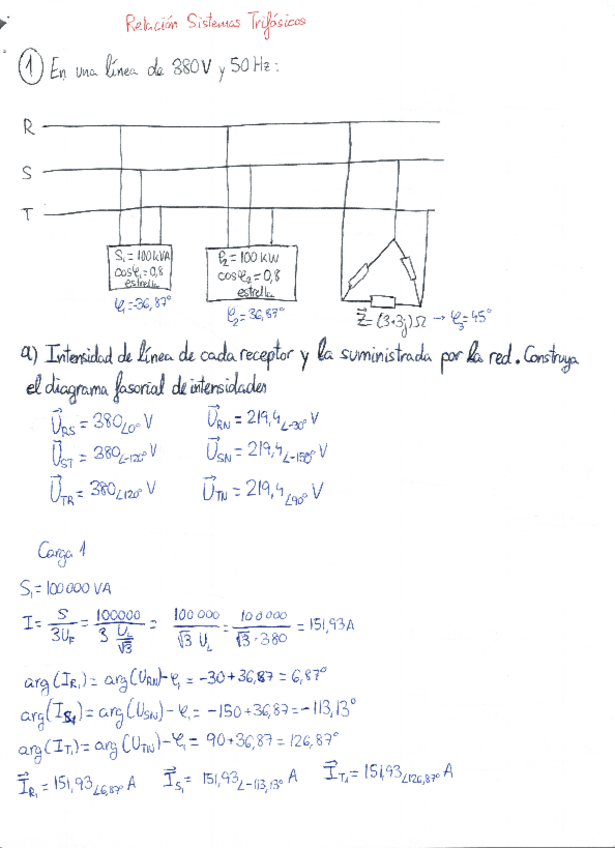 Relación Sistemas Trifásicos
① En una línea de 380V y 50 Hz:
R
S
T
S₁ = 100 kVA
cosφ₁ = 0,8
estrella
φ₁ = 36,87°
P₂ = 100 KW
cosφ₂ = 0,8
estrella
φ₂ = 36,87°
Z = (3+3j) Ω → φ₃ = 45°
a) Intensidad de línea de cada receptor y la suministrada por la red. Construya
el diagrama fasorial de intensidades
U⃗RS = 380∠0° V U⃗RN = 219,4∠-30° V
U⃗ST = 380∠-120° V U⃗SN = 219,4∠-150° V
U⃗TR = 380∠120° V U⃗TN = 219,4∠90° V
Carga 1
S₁ = 100000 VA
I = S/3UF = 100000/(3 UL/√3) = 100 000/(√3 UL) = 100 000/(√3·380) = 151,93 A
arg(IR₁) = arg(URN) - φ₁ = -30 + 36,87 = 6,87°
arg(IS₁) = arg(USN) - φ₁ = -150 + 36,87 = -113,13°
arg(IT₁) = arg(UTN) - φ₁ = 90 + 36,87 = 126,87°
I⃗R₁ = 151,93∠6,87° A I⃗S₁ = 151,93∠-113,13° A I⃗T₁ = 151,93∠126,87° A